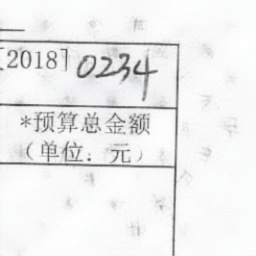 [2018] 0234
*预算总金额
（单位：元）